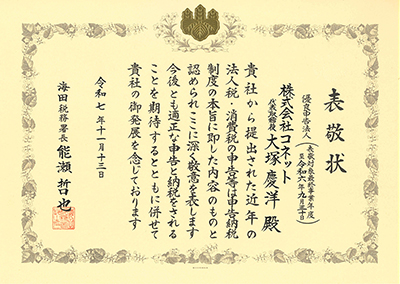 表敬状
優良申告法人(表敬対象最終事業年度 至令和六年九月三十日)
株式会社コネット
代表取締役 大塚慶洋 殿
貴社から提出された近年の
法人税・消費税の申告等は申告納税
制度の本旨に即した内容のものと
認められここに深く敬意を表します
今後とも適正な申告と納税をされる
ことを期待するとともに併せて
貴社の御発展を念じております
令和七年十一月十三日
海田税務署長 能瀬哲也